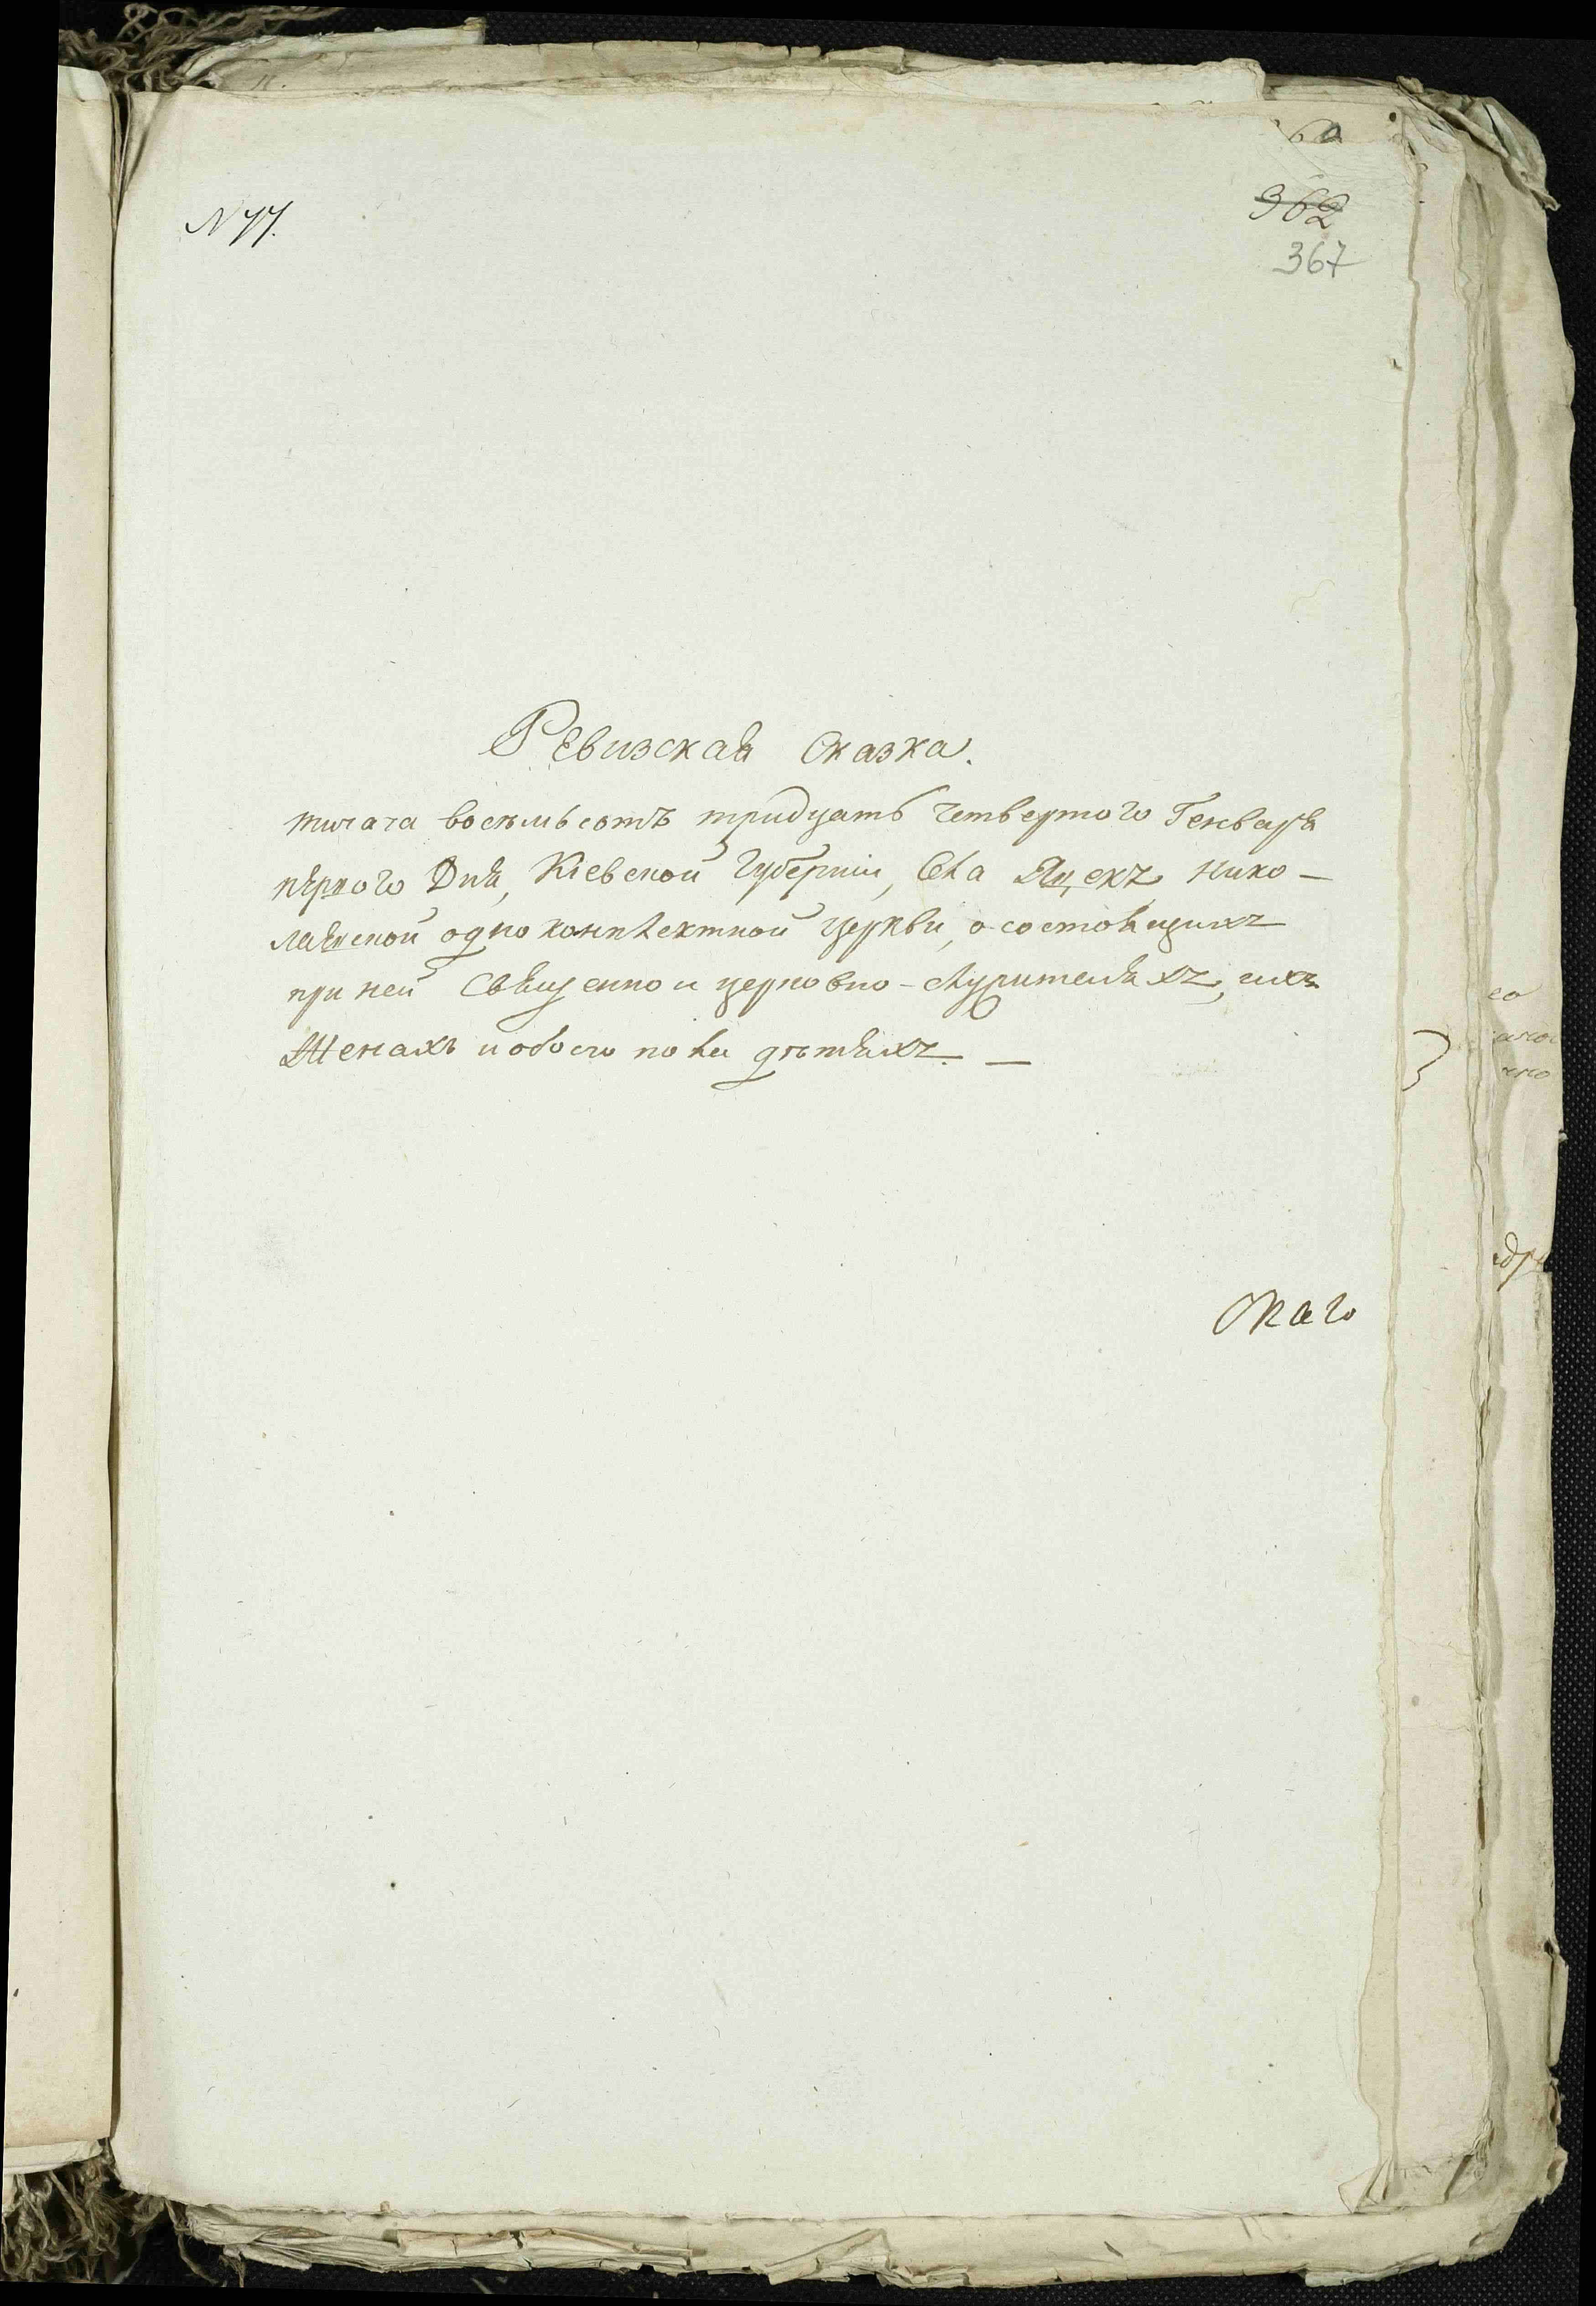 N 77.
362
367
Ревизская Сказка.
тисача восемьсотъ тридцать четвертого Генваря
перваго Дня, Кіевской Губерніи, Села Яцекъ Нико-
лаевской однокомплектной церкви, о состоящихъ
при ней Священно и церковно-служителяхъ, ихъ
Женахъ и обоего пола дѣтяхъ. —